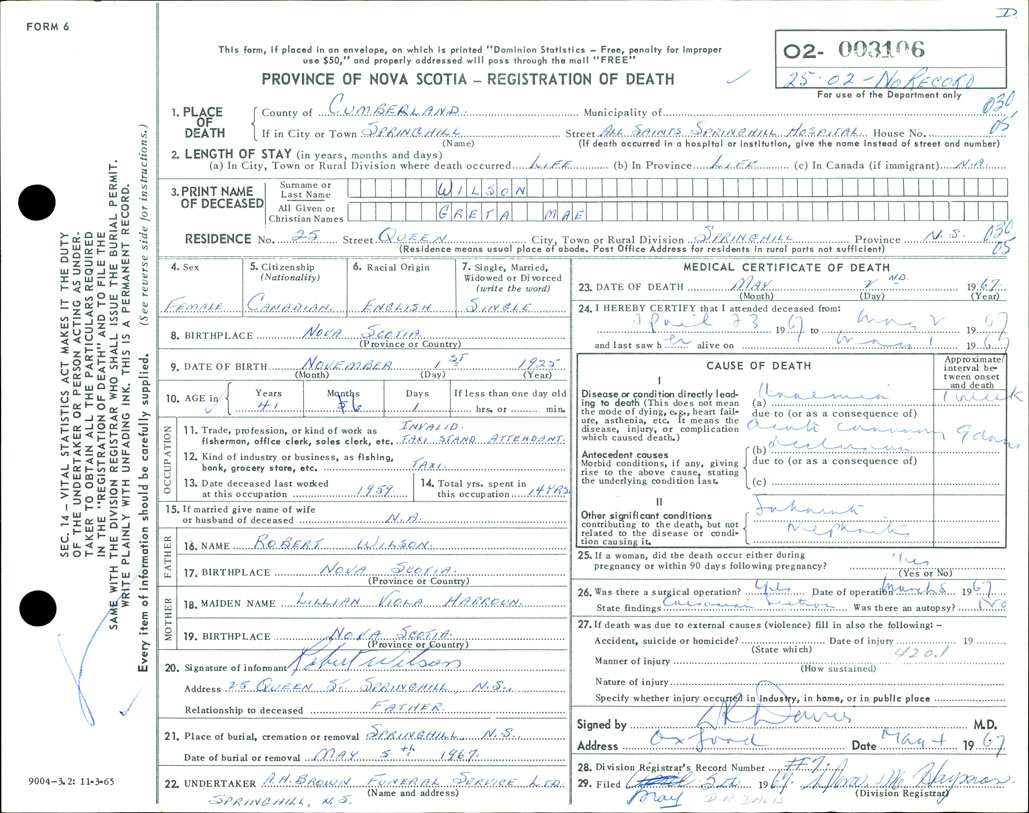 D.
FORM 6
This form, if placed in an envelope, on which is printed "Dominion Statistics – Free, penalty for improper
use $50," and properly addressed will pass through the mail "FREE"
O2- 003106
PROVINCE OF NOVA SCOTIA – REGISTRATION OF DEATH
25-02 - NO RECORD
For use of the Department only
1. PLACE OF DEATH County of CUMBERLAND. Municipality of 030
If in City or Town SPRINGHILL Street ALL SAINTS SPRINGHILL HOSPITAL House No. 05
(Name) (If death occurred in a hospital or institution, give the name instead of street and number)
2. LENGTH OF STAY (in years, months and days)
(a) In City, Town or Rural Division where death occurred LIFE (b) In Province LIFE (c) In Canada (if immigrant) N.A.
3. PRINT NAME OF DECEASED Surname or Last Name WILSON
All Given or Christian Names GRETA MAE
RESIDENCE No. 25 Street QUEEN City, Town or Rural Division SPRINGHILL Province N.S. 030
05
(Residence means usual place of abode. Post Office Address for residents in rural parts not sufficient)
4. Sex FEMALE
5. Citizenship (Nationality) CANADIAN
6. Racial Origin ENGLISH
7. Single, Married, Widowed or Divorced (write the word) SINGLE
8. BIRTHPLACE NOVA SCOTIA
(Province or Country)
9. DATE OF BIRTH NOVEMBER 1 ST 1925
(Month) (Day) (Year)
10. AGE in Years 41 Months 6 Days 1 If less than one day old
hrs. or min.
OCCUPATION
11. Trade, profession, or kind of work as INVALID.
fisherman, office clerk, sales clerk, etc. TAXI STAND ATTENDANT.
12. Kind of industry or business, as fishing,
bank, grocery store, etc. TAXI.
13. Date deceased last worked
at this occupation 1959
14. Total yrs. spent in
this occupation 14 YRS.
15. If married give name of wife
or husband of deceased N.A.
FATHER
16. NAME ROBERT WILSON
17. BIRTHPLACE NOVA SCOTIA
(Province or Country)
MOTHER
18. MAIDEN NAME LILLIAN VIOLA HARROUN.
19. BIRTHPLACE NOVA SCOTIA.
(Province or Country)
20. Signature of informant Robert Wilson
Address 25 QUEEN ST. SPRINGHILL, N.S.
Relationship to deceased FATHER.
21. Place of burial, cremation or removal SPRINGHILL, N.S.
Date of burial or removal MAY 5 th 1967.
22. UNDERTAKER A.H. BROWN FUNERAL SERVICE LTD.
(Name and address)
SPRINGHILL, N.S.
MEDICAL CERTIFICATE OF DEATH
23. DATE OF DEATH MAY 2 ND. 1967.
(Month) (Day) (Year)
24. I HEREBY CERTIFY that I attended deceased from:
April 23 1967 to May 2 1967
and last saw her alive on May 1 1967
CAUSE OF DEATH
Approximate interval between onset and death
I
Disease or condition directly leading to death (This does not mean the mode of dying, e.g., heart failure, asthenia, etc. It means the disease, injury, or complication which caused death.)
(a) Uraemia 1 week
due to (or as a consequence of)
acute coronary 9 days
(b) occlusion
Antecedent causes
Morbid conditions, if any, giving rise to the above cause, stating the underlying condition last.
due to (or as a consequence of)
(c)
II
Other significant conditions
contributing to the death, but not related to the disease or condition causing it.
Nephritis
25. If a woman, did the death occur either during
pregnancy or within 90 days following pregnancy? Yes
(Yes or No)
26. Was there a surgical operation? Yes Date of operation March 8 1967
State findings Caesarean section Was there an autopsy? No
27. If death was due to external causes (violence) fill in also the following: –
Accident, suicide or homicide? Date of injury 19
(State which) 420.1
Manner of injury
(How sustained)
Nature of injury
Specify whether injury occurred in industry, in home, or in public place
Signed by Davis M.D.
Address Oxford Date May 4 1967
28. Division Registrar's Record Number #7.
29. Filed May 5th 1967
(Division Registrar)
D.R. DAVIS
SEC. 14 – VITAL STATISTICS ACT MAKES IT THE DUTY
OF THE UNDERTAKER OR PERSON ACTING AS UNDER-
TAKER TO OBTAIN ALL THE PARTICULARS REQUIRED
IN THE "REGISTRATION OF DEATH" AND TO FILE THE
SAME WITH THE DIVISION REGISTRAR WHO SHALL ISSUE THE BURIAL PERMIT.
WRITE PLAINLY WITH UNFADING INK. THIS IS A PERMANENT RECORD.
Every item of information should be carefully supplied. (See reverse side for instructions.)
9004-3.2: 11-3-65